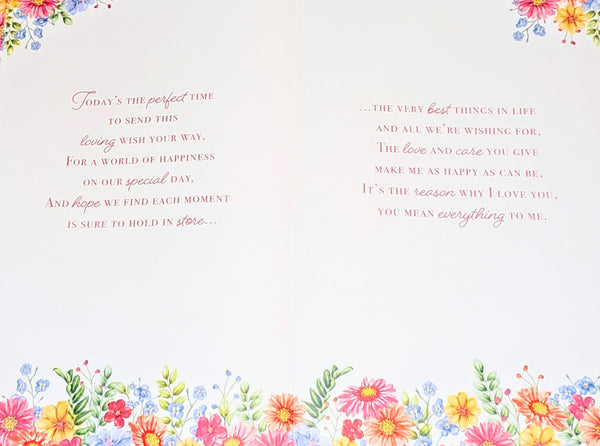 Today's the perfect time
to send this
loving wish your way,
For a world of happiness
on our special day,
And hope we find each moment
is sure to hold in store...
...the very best things in life
and all we're wishing for,
The love and care you give
make me as happy as can be,
It's the reason why I love you,
you mean everything to me.